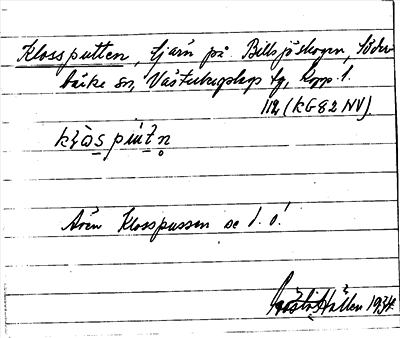 Klossputten, tjärn på Billsjöskogen, Söder-
bärke sn, Västerbergslags fg, Kopp. l.
112 (KG82 NV).
Även Klosspussen se d. o!
Gösta Hallén 1934.